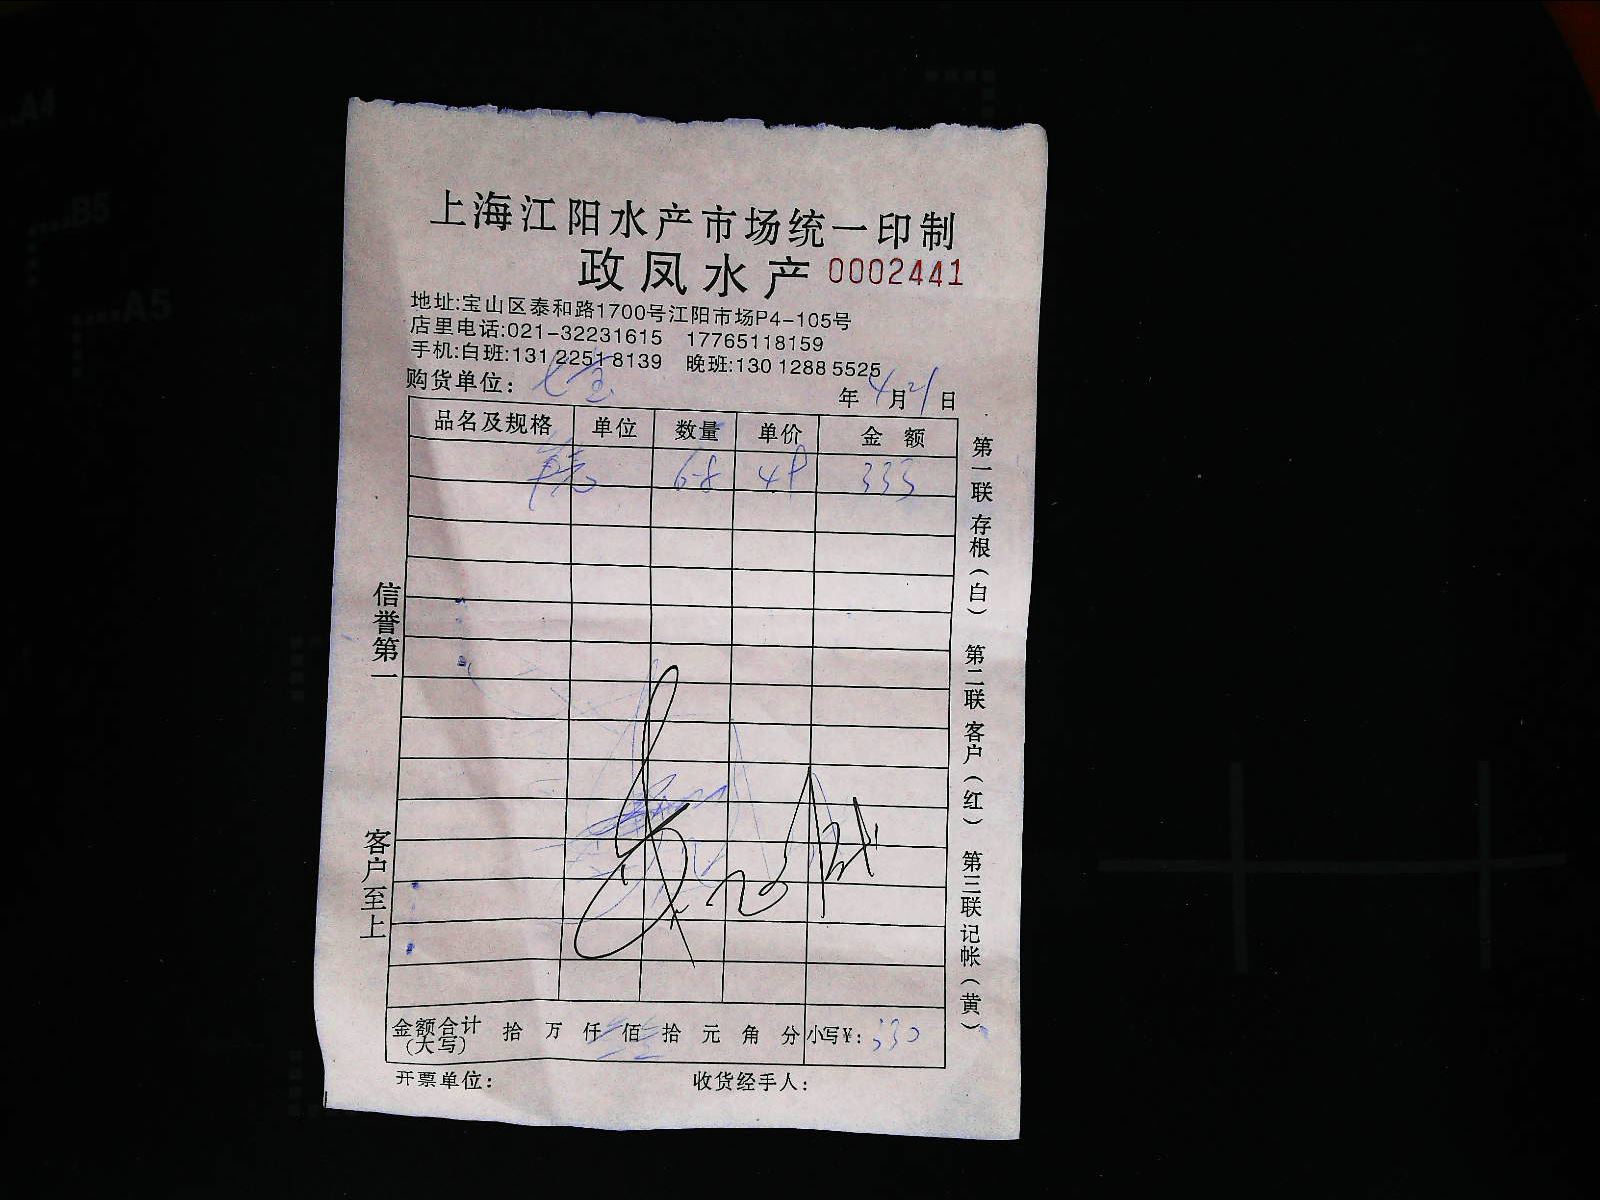 上海江阳水产市场统一印制
政凤水产 0002441
地址:宝山区泰和路1700号江阳市场P4-105号
店里电话:021-32231615 17765118159
手机:白班:131 2251 8139 晚班:130 1288 5525
购货单位: 七宝 年 4 月 21 日
品名及规格 单位 数量 单价 金额
6-8 333
信誉第一
客户至上
第一联存根(白) 第二联客户(红) 第三联记帐(黄)
金额合计(大写) 拾 万 仟 佰 拾 元 角 分 小写¥: 330
开票单位: 收货经手人:
A4
B5
A5